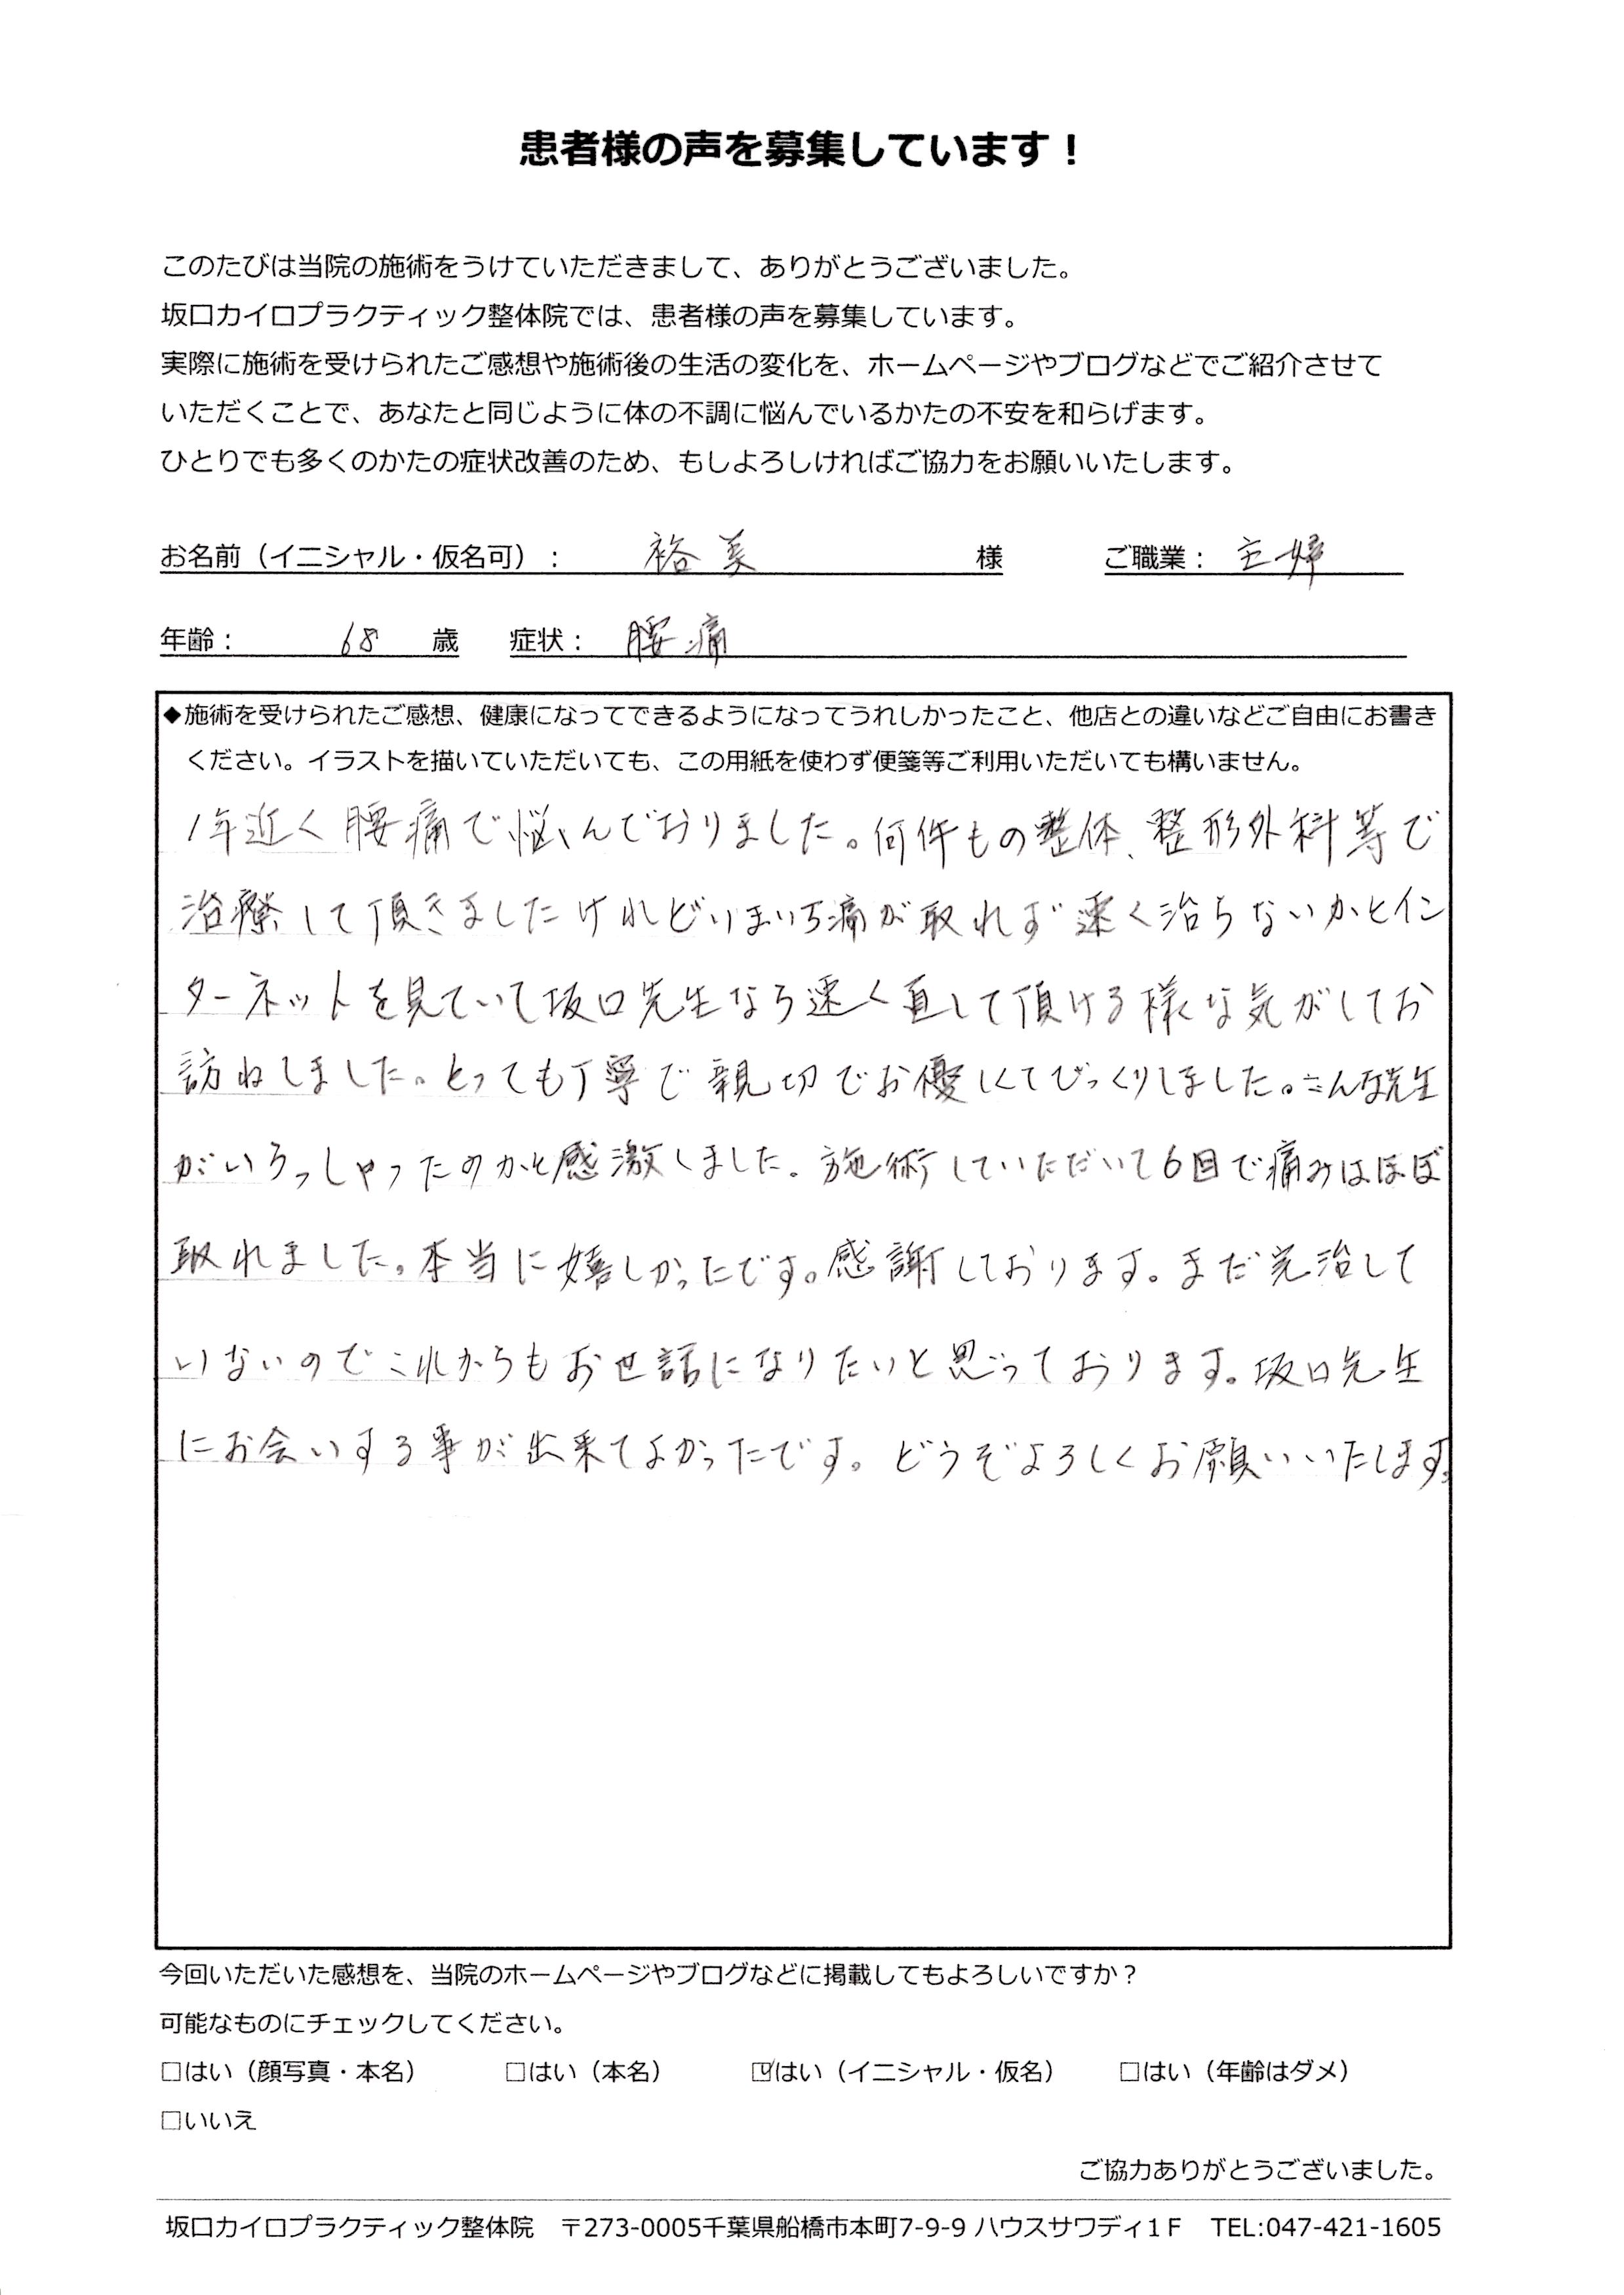 患者様の声を募集しています！
このたびは当院の施術をうけていただきまして、ありがとうございました。
坂口カイロプラクティック整体院では、患者様の声を募集しています。
実際に施術を受けられたご感想や施術後の生活の変化を、ホームページやブログなどでご紹介させて
いただくことで、あなたと同じように体の不調に悩んでいるかたの不安を和らげます。
ひとりでも多くのかたの症状改善のため、もしよろしければご協力をお願いいたします。
お名前（イニシャル・仮名可）： 裕美 様 ご職業： 主婦
年齢： 68 歳 症状： 腰痛
◆施術を受けられたご感想、健康になってできるようになってうれしかったこと、他店との違いなどご自由にお書き
ください。イラストを描いていただいても、この用紙を使わず便箋等ご利用いただいても構いません。
1年近く腰痛で悩んでおりました。何件もの整体、整形外科等で
治療して頂きましたけれどいまいち痛が取れず速く治らないかとイン
ターネットを見ていて坂口先生なら速く直して頂ける様な気がしてお
訪ねしました。とっても丁寧で親切でお優しくてびっくりしました。こんな先生
がいらっしゃったのかと感激しました。施術していただいて6回で痛みはほぼ
取れました。本当に嬉しかったです。感謝しております。まだ完治して
いないのでこれからもお世話になりたいと思っております。坂口先生
にお会いする事が出来てよかったです。どうぞよろしくお願いいたします。
今回いただいた感想を、当院のホームページやブログなどに掲載してもよろしいですか？
可能なものにチェックしてください。
□はい（顔写真・本名） □はい（本名） ☑はい（イニシャル・仮名） □はい（年齢はダメ）
□いいえ
ご協力ありがとうございました。
坂口カイロプラクティック整体院 〒273-0005千葉県船橋市本町7-9-9 ハウスサワディ1F TEL:047-421-1605